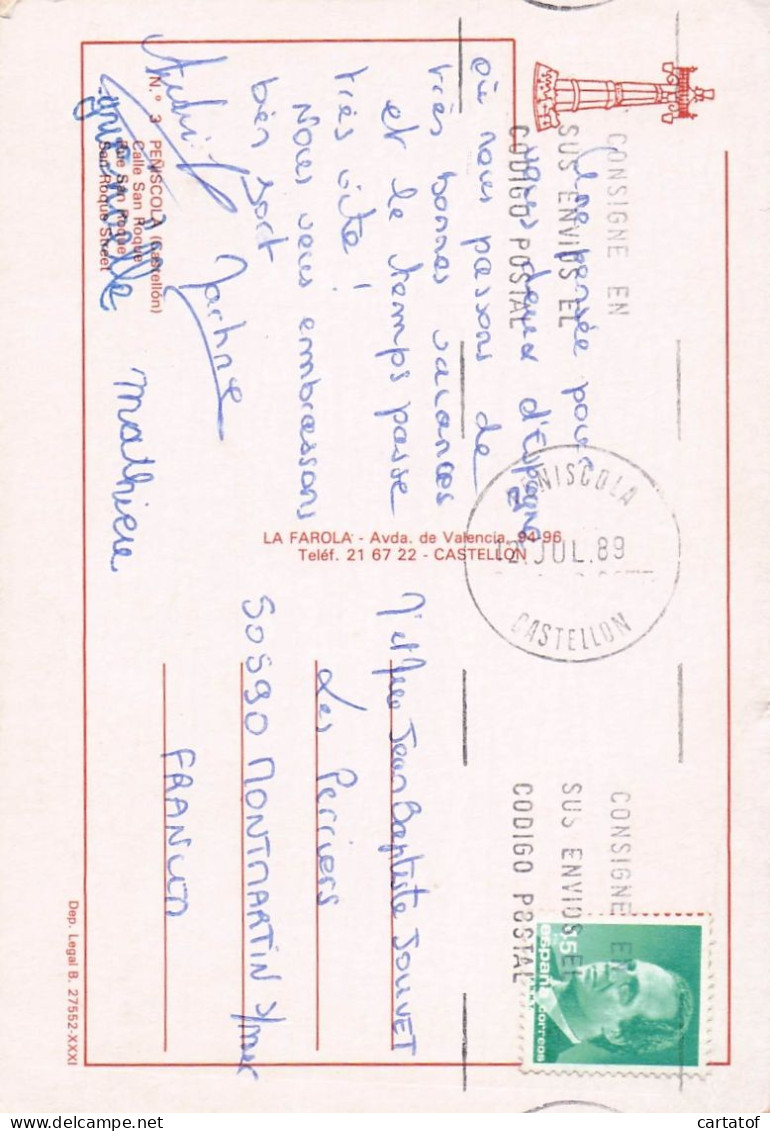 CONSIGNE EN
SUS ENVIOS EL
CODIGO POSTAL
PEÑISCOLA
12 JUL.89
CASTELLON
CONSIGNE EN
SUS ENVIOS EL
CODIGO POSTAL
45
PTA
españa
correos
Une pensée pour
vous deux d'Espagne
où nous passons de
très bonnes vacances
et le temps passe
très vite!
Nous vous embrassons
bien fort
Martine
Mathieu
M et Mme Jean Baptiste JOUVET
Les Perriers
50590 MONTMARTIN s/mer
FRANCE
LA FAROLA - Avda. de Valencia, 94-96
Teléf. 21 67 22 - CASTELLON
N.º 3 PEÑISCOLA (Castellón)
Calle San Roque
Rue San Roque
San Roque Street
Dep. Legal B. 27552-XXXI
cartatof